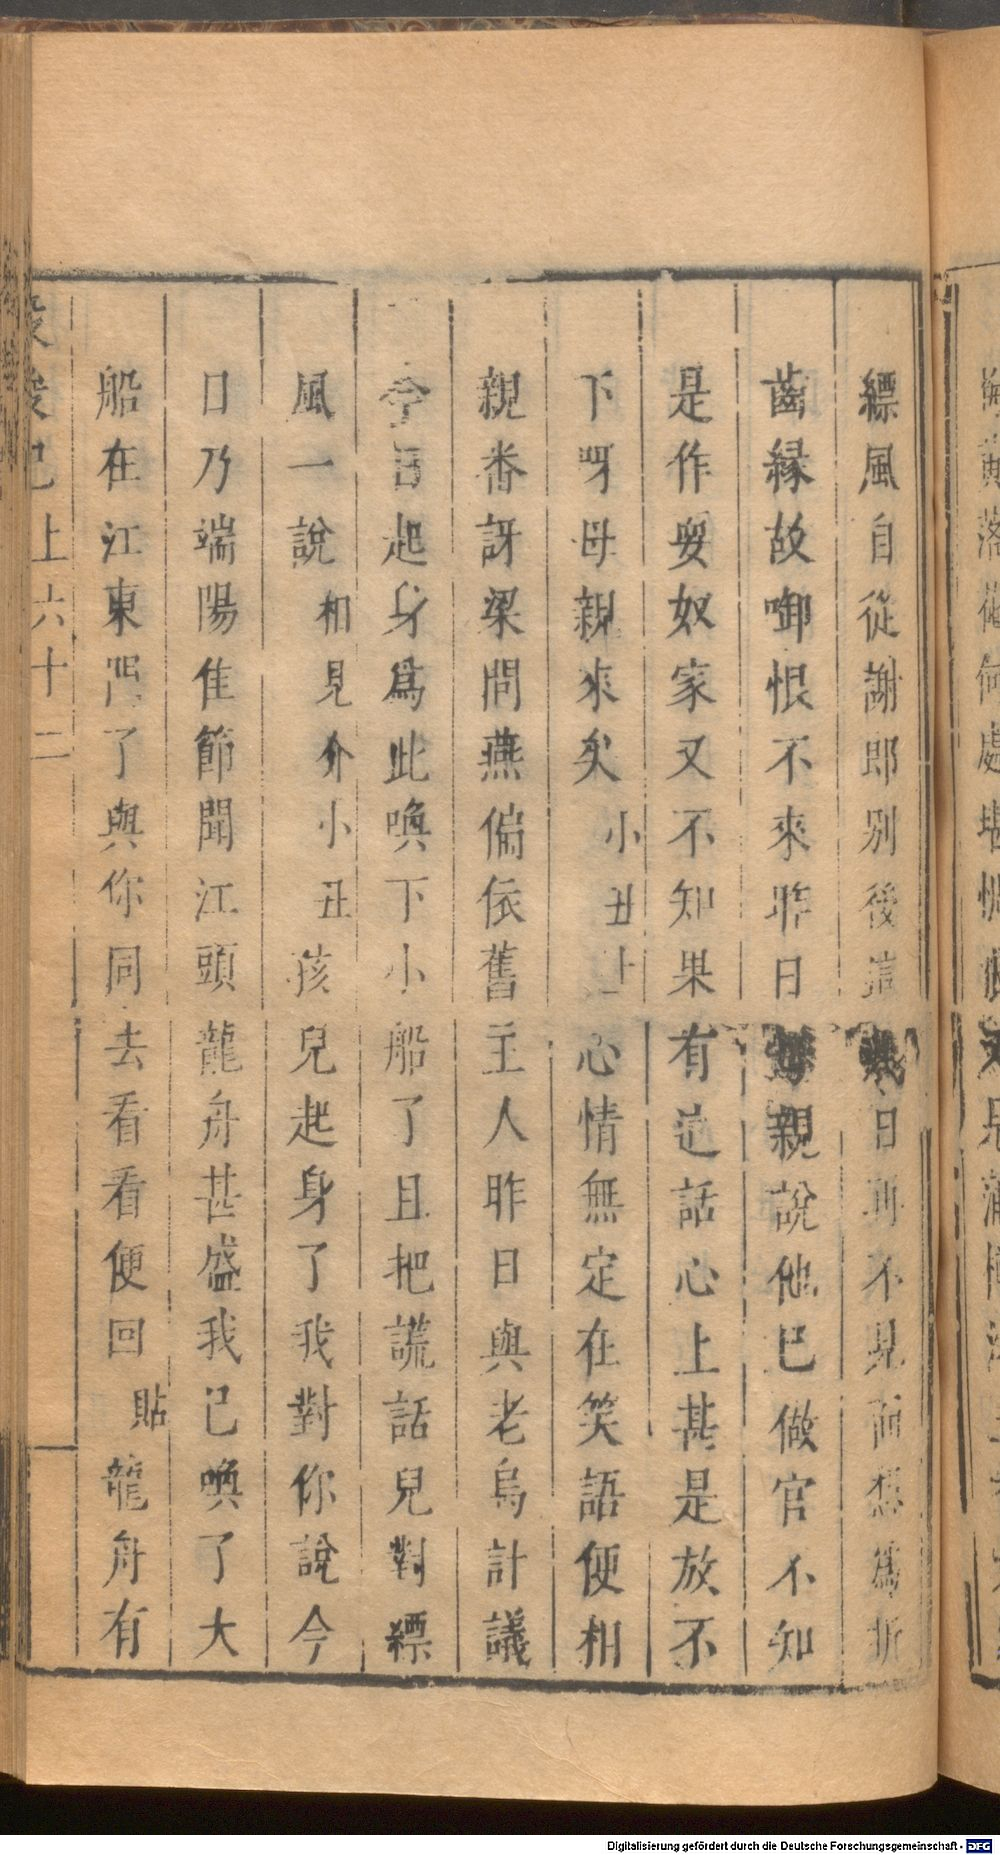 縹風自從謝郎別後這幾日再不見面想爲折
齒緣故啣恨不來昨日母親說他已做官不知
是作耍奴家又不知果有這話心上甚是放不
下呀母親來矣小丑上心情無定在笑語便相
親番訝梁間燕偏依舊主人昨日與老烏計議
今日起身爲此喚下小船了且把謊話兒對縹
風一說相見介小丑孩兒起身了我對你說今
日乃端陽佳節聞江頭龍舟甚盛我已喚了大
船在江東門了與你同去看看便回貼龍舟有
上六十二
Digitalisierung gefördert durch die Deutsche Forschungsgemeinschaft - DFG